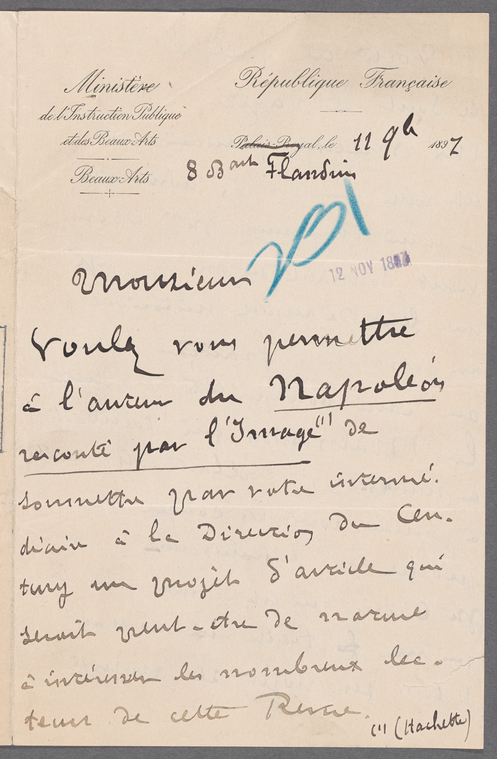 Ministère
de l'Instruction Publique
et des Beaux-Arts
Beaux-Arts
République Française
Palais-Royal, le 11 9b 1897
8 Bard Flandrin
201
12 NOV 1897
Monsieur
Voulez vous permettre
à l'auteur du Napoléon
raconté par l'Image (1) de
soumettre par votre intermé-
diaire à la Direction du Cen-
tury un projet d'article qui
serait peut-être de nature
à intéresser les nombreux lec-
teurs de cette Revue.
(1) (Hachette)